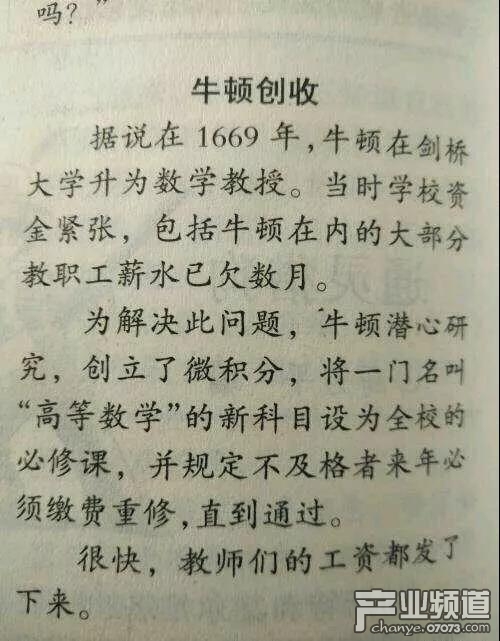 吗？”
牛顿创收
据说在 1669 年，牛顿在剑桥
大学升为数学教授。当时学校资
金紧张，包括牛顿在内的大部分
教职工薪水已欠数月。
为解决此问题，牛顿潜心研
究，创立了微积分，将一门名叫
“高等数学”的新科目设为全校的
必修课，并规定不及格者来年必
须缴费重修，直到通过。
很快，教师们的工资都发了
下来。
产业频道
chanye.07073.com